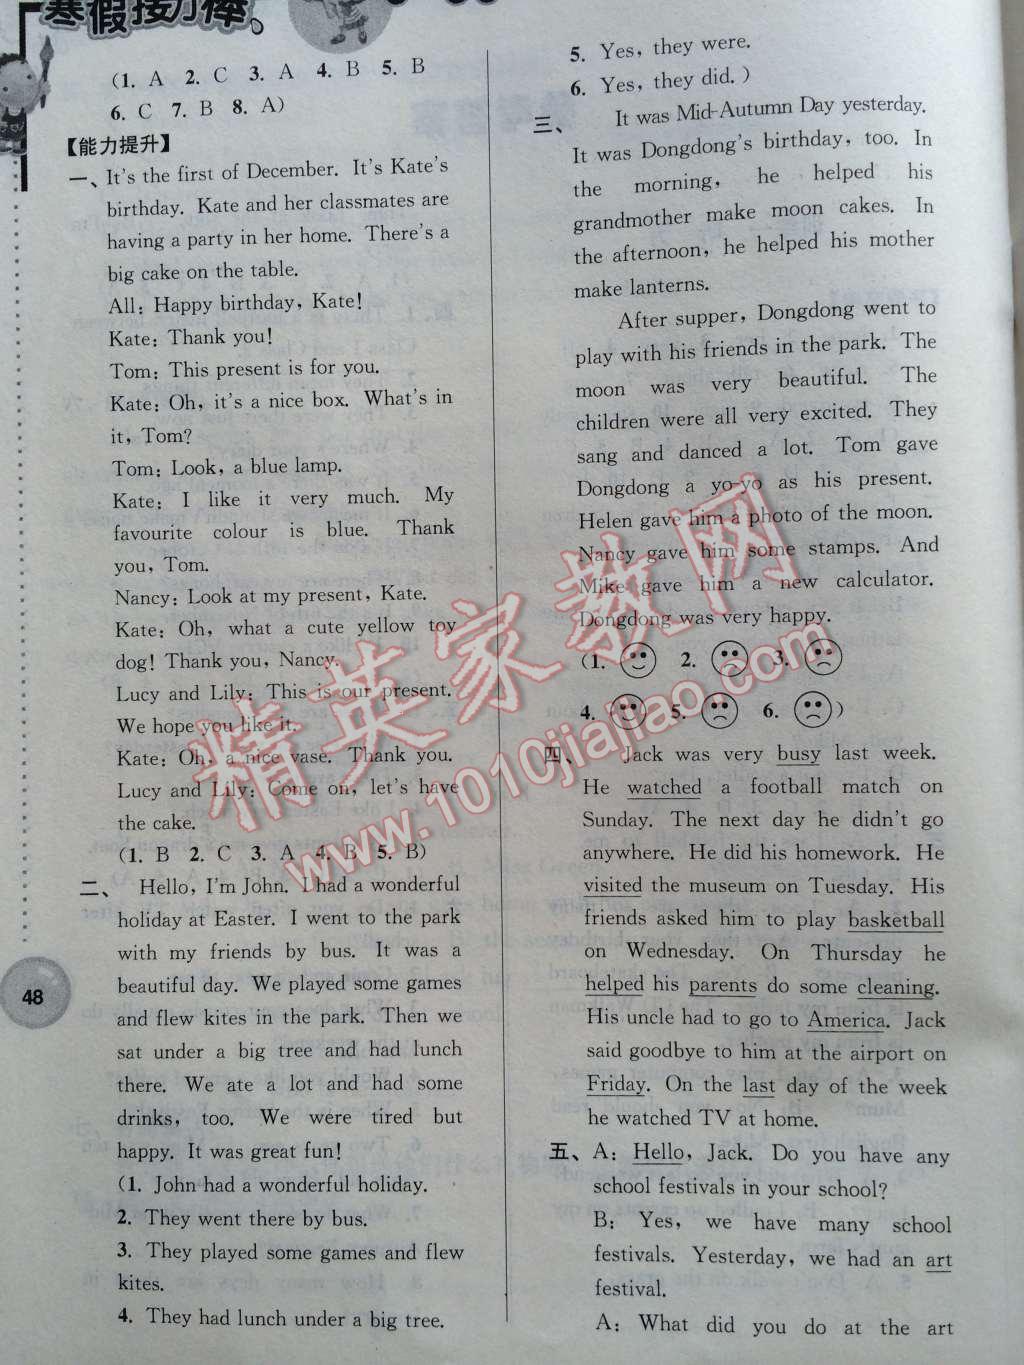 寒假接力棒。
(1. A 2. C 3. A 4. B 5. B
6. C 7. B 8. A)
【能力提升】
一、It's the first of December. It's Kate's
birthday. Kate and her classmates are
having a party in her home. There's a
big cake on the table.
All: Happy birthday, Kate!
Kate: Thank you!
Tom: This present is for you.
Kate: Oh, it's a nice box. What's in
it, Tom?
Tom: Look, a blue lamp.
Kate: I like it very much. My
favourite colour is blue. Thank
you, Tom.
Nancy: Look at my present, Kate.
Kate: Oh, what a cute yellow toy
dog! Thank you, Nancy.
Lucy and Lily: This is our present.
We hope you like it.
Kate: Oh, a nice vase. Thank you.
Lucy and Lily: Come on, let's have
the cake.
(1. B 2. C 3. A 4. B 5. B)
二、 Hello, I'm John. I had a wonderful
holiday at Easter. I went to the park
with my friends by bus. It was a
beautiful day. We played some games
and flew kites in the park. Then we
sat under a big tree and had lunch
there. We ate a lot and had some
drinks, too. We were tired but
happy. It was great fun!
(1. John had a wonderful holiday.
2. They went there by bus.
3. They played some games and flew
kites.
4. They had lunch under a big tree.
48
5. Yes, they were.
6. Yes, they did.)
三、 It was Mid-Autumn Day yesterday.
It was Dongdong's birthday, too. In
the morning, he helped his
grandmother make moon cakes. In
the afternoon, he helped his mother
make lanterns.
After supper, Dongdong went to
play with his friends in the park. The
moon was very beautiful. The
children were all very excited. They
sang and danced a lot. Tom gave
Dongdong a yo-yo as his present.
Helen gave him a photo of the moon.
Nancy gave him some stamps. And
Mike gave him a new calculator.
Dongdong was very happy.
(1. 2. 3.
4. 5. 6. )
四、 Jack was very busy last week.
He watched a football match on
Sunday. The next day he didn't go
anywhere. He did his homework. He
visited the museum on Tuesday. His
friends asked him to play basketball
on Wednesday. On Thursday he
helped his parents do some cleaning.
His uncle had to go to America. Jack
said goodbye to him at the airport on
Friday. On the last day of the week
he watched TV at home.
五、A: Hello, Jack. Do you have any
school festivals in your school?
B: Yes, we have many school
festivals. Yesterday, we had an art
festival.
A: What did you do at the art
精英家教网
www.1010jiajiao.com